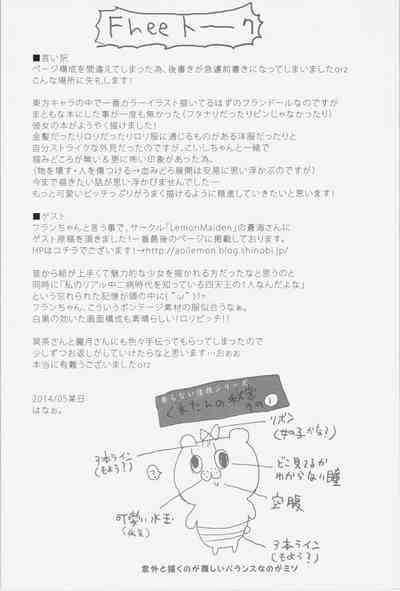 Fheeトーク
■言い訳
ページ構成を間違えてしまった為、後書きが急遽前書きになってしまいましたorz
こんな場所に失礼します!
東方キャラの中で一番カラーイラスト描いてるはずのフランドールなのですが
まともな本にした事が一度も無かった(フタナリだったりピンじゃなかったり)
彼女の本がようやく描けました!
金髪だったりロリだったりロリ服に通じるものがある洋服だったりと
自分ストライクな外見だったのですが、こいしちゃんと一緒で
掴みどころが無い&更に怖い印象があった為、
(物を壊す・人を傷つける→血みどろ展開は安易に思い浮かぶのですが)
今まで描きたい話が思い浮かびませんでした…
もっと可愛いビッチっぷりがうまく描けるように精進していきたいと思います!
■ゲスト
フランちゃんと言う事で、サークル「LemonMaiden」の蒼海さんに
ゲスト原稿を頂きました!一番最後のページに掲載しております。
HPはコチラでございます!→http://aoilemon.blog.shinobi.jp/
昔から絵が上手くて魅力的な少女を描かれる方だったなと思うのと
同時に「私のリアル中二病時代を知っている四天王の1人なんだよな」
という忘れられた記憶が頭の中に(˘ω˘)!?
フランちゃん、こういうボンテージ素材の服似合うなぁ。
白黒の効いた画面構成も素晴らしい!ロリビッチ!!
さんと朧月さんにも色々手伝ってもらってしまったので
少しずつお返しがしていけたらなと思います…おぉぉ
本当に有難うございましたorz
2014/05某日
はなぉ。
らない シリーズ
くまたんの秘密
その1
リボン
(女の子かな?)
3本ライン
(もよう?)
?
どこ見てるか
わからない瞳
空腹
可愛い水玉
3本ライン
(もよう?)
意外と描くのが難しいバランスなのがミソ